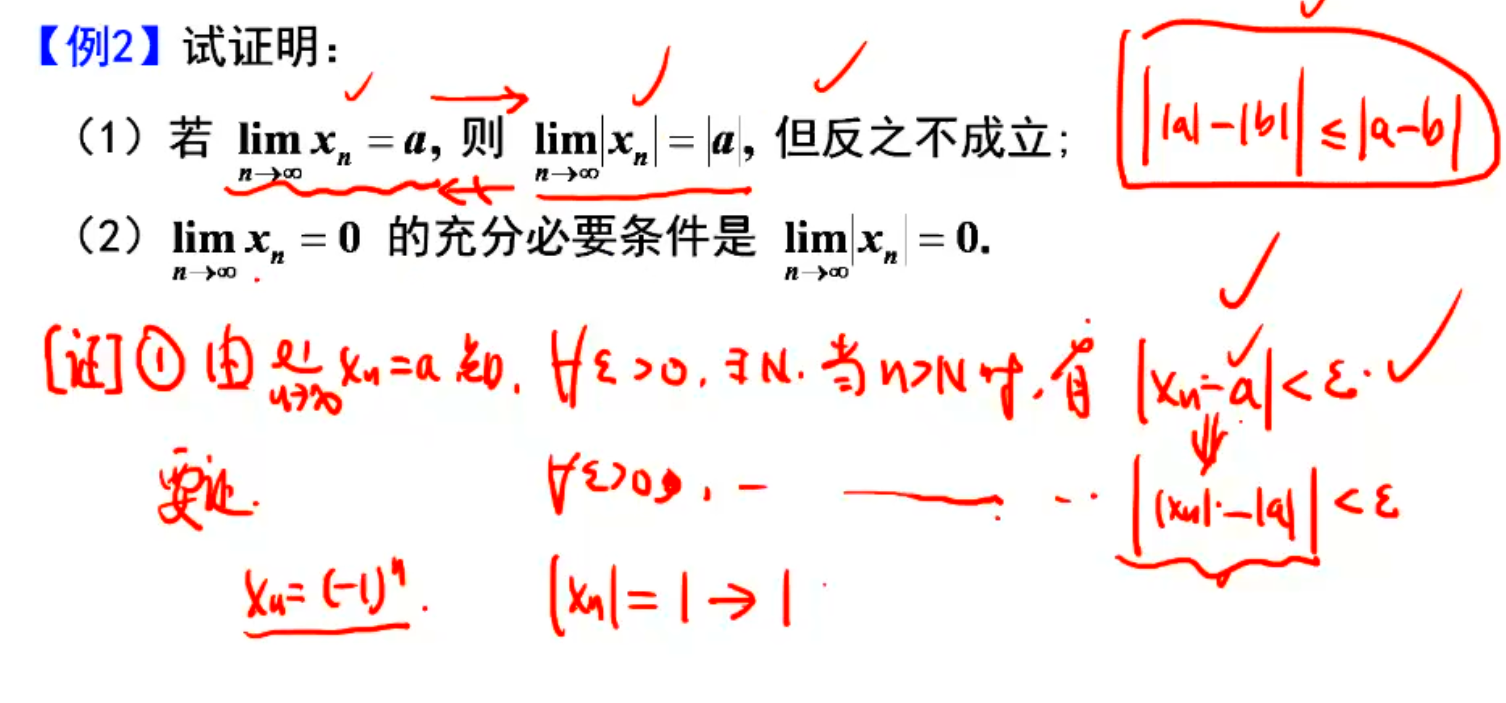 【例2】试证明：
||a|-|b|| ≤ |a-b|
（1）若 lim_{n→∞} x_n = a, 则 lim_{n→∞} |x_n| = |a|, 但反之不成立；
（2）lim_{n→∞} x_n = 0 的充分必要条件是 lim_{n→∞} |x_n| = 0.
[证] ① 由 lim_{n→∞} x_n = a 知, ∀ε>0, ∃N. 当 n>N 时, 有 |x_n-a| < ε.
⇓
要证. ∀ε>0, - —— ... ||x_n|-|a|| < ε
x_n = (-1)^n. |x_n| = 1 → 1